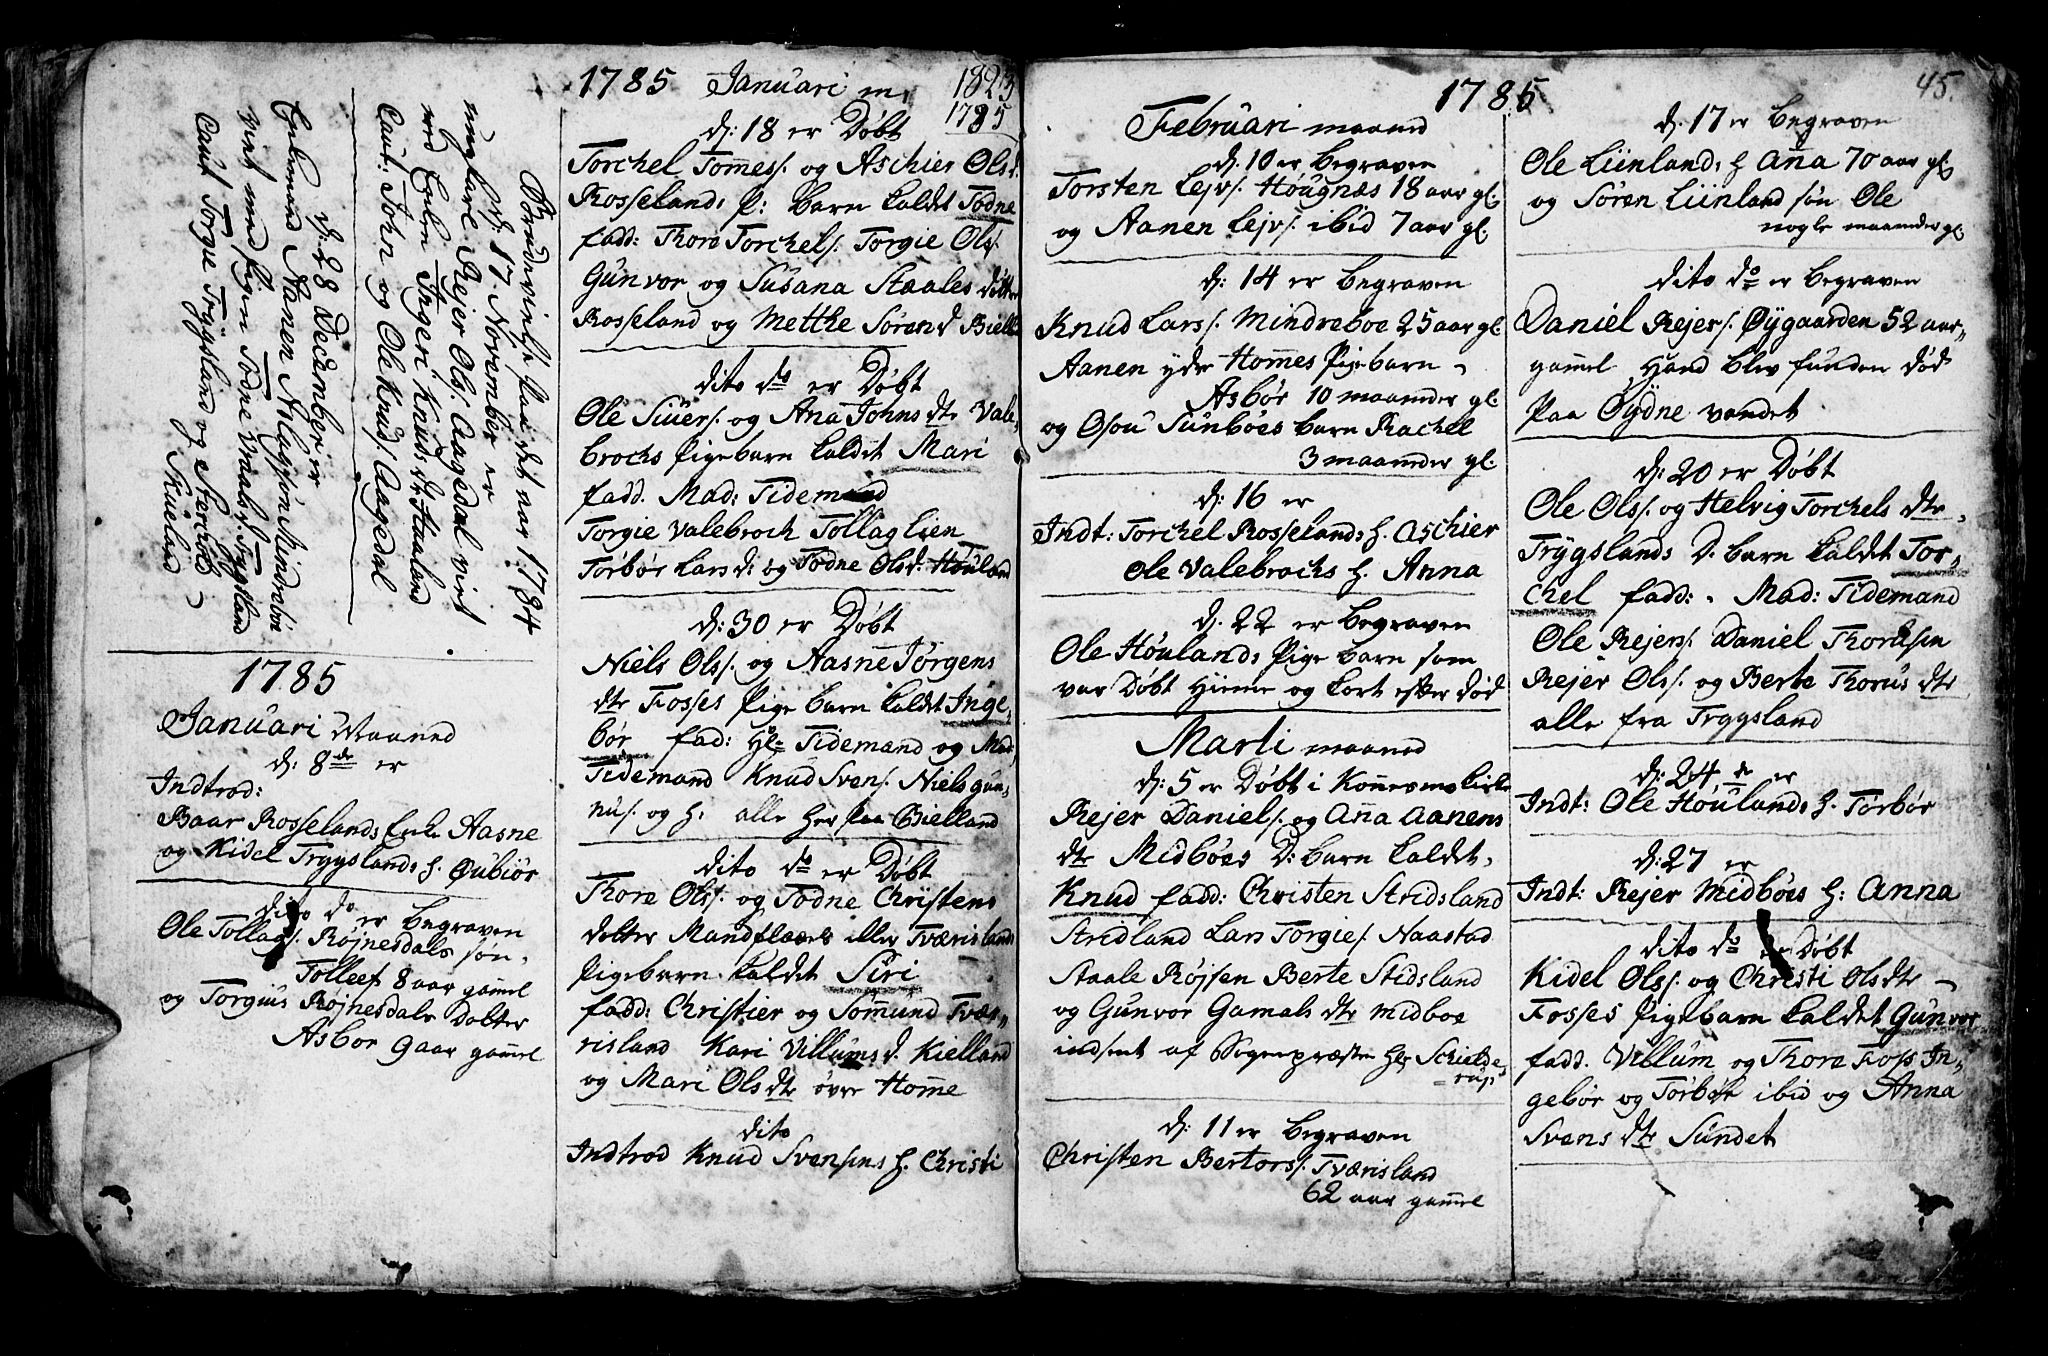 Brudevielse paa det aar 1784
d: 17 November er
ungkarl Rejer Ols/. Aagedal viet
med Enken Ingeri Knuds dtr Haaland
Caut: John og Ole Knuds/. Aagedal
d: 28 December er
Enkemand Aanen Mindreboe
viet med pigen Todne Trygsland
Caut Torgie Trygsland og
Skueland
1785
Januari Maaned
d: 8de er
Indtrod:
Baar Rosselands Enke Aasne
og Kidel Trygslands h. Øubiør
dito do er begraven
Ole Tollags/. Røjnesdals søn
Tollef 8 aar gamel
og Torgius Røjnesdals dotter
Asbor 9 aar gamel
1785 Januari m. 1823
1785
d: 18 er Døbt
Torchel Tomes/. og Aschier Ols d.
Rosselands p: barn kaldet Todne
fadd: Thore Torchels/. Torgie Ols/.
Gunvor og Susana Staales døttre
Rosseland og Metthe Sørens d. Biell
dito do er Døbt
Ole Siuers/. og Ana Johns dtr Vale-
brochs Pigebarn kaldet Mari
fadd. Mad: Tidemand
Torgie Valebroch Tollag Lien
Torbør Lars d: og Todne Ols d: Høuland
d: 30 er Døbt
Niels Ols/. og Aasne Jørgens
dtr Fosses Pige barn kaldet Inge-
bør fad: Hr Tidemand og Mad:
Tidemand Knud Svens/. Niels Gun-
nus/. og h. alle her paa Bielland
dito do er Døbt
Thore Ols/. og Todne Christens
dotter Mandflaaes iller Tværislands
Pigebarn kaldet Siri
fadd: Christier og Somund Tvæ-
risland Kari Villums d. Kielland
og Mari Ols dtr øvre Home
dito
Indtrod Knud Svensens h. Christi
1785
Februari maaned
d. 10 er begraven
Torsten Lejvs/. Høugnæs 18 aar gl.
og Aanen Lejvs/. ibid 7 aar gl.
d: 14 er begraven
Knud Lars/. Mindreboe 25 aar gl
Aanen ydr Homes Pigebarn
Asbør 10 maander gl.
og Osou Sunboes barn Rachel
3 maander gl.
d: 16 er
Indt: Torchel Rosselands h. Aschier
Ole Valebrochs h. Anna
d. 22 er begraven
Ole Høulands Pige barn som
var Døbt hieme og kort efter død
Marti maaned
d: 5 er Døbt i Konnesmo kirke
Rejer Daniels/. og Ana Aanens
dtr Midbøes D: barn kaldet
Knud fadd: Christen Stridsland
Stridland Lars Torgies/. Naastad
Staale Røjsen Berte Stidsland
og Gunvor Gamals dtr Midboe
indsent af Sognepræsten Hr Schielde-
rup
d: 11 er begraven
Christen Bertors/. Tværisland
62 aar gamel
45.
d: 17 er begraven
Ole Liinlands h Ana 70 aar gl.
og Søren Liinland søn Ole
nogle maander gl.
dito do er begraven
Daniel Rejers/. Øygaarden 52 aar
gamel Hand blev funden død
paa Øydne vandet
d: 20 er Døbt
Ole Ols/. og Helvig Torchels dtr
Trygslands D. barn kaldet Tor-
chel fadd: Mad: Tidemand
Ole Rejers/. Daniel Thorasen
Rejer Ols/. og Berte Thorus dtr
alle fra Trygsland
d: 24 de er
Indt: Ole Høulands h. Torbør
d: 27 er
Indt: Rejer Midbøes h: Anna
dito do er Døbt
Kidel Ols/. og Christi Olsdtr
Fosses Pigebarn kaldet Gunvor
fadd. Villum og Thore Foss In-
gebør og Torbør ibid og Anna
Svens dtr Sundet